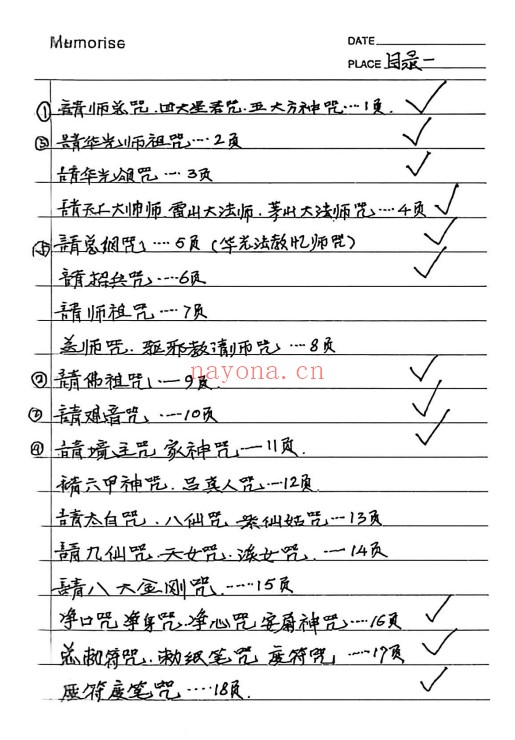 Memorise
DATE
PLACE 目录一
① 請师总咒.四大圣君咒.五大方神咒…1页.
③ 請华光师祖咒…2页
請华光頌咒…3页
請天上大帅师.雷山大法师.茅山大法师咒…4页
請总烟咒…5页(华光法教忆师咒)
請招兵咒…6页
請师祖咒…7页
差师咒.驱邪教请师咒…8页
nayona.cn
② 請佛祖咒…9页
③ 請观音咒…10页
④ 請境主咒 家神咒…11页
請六甲神咒.吕真人咒…12页.
請太白咒.八仙咒 紫仙姑咒…13页
請九仙咒.天女咒.法女咒.…14页
請八大金刚咒.…15页
净口咒 净身咒.净心咒 安奋神咒…16页
总勅符咒.勅纸笔咒 座符咒,…17页
座符座笔咒…18页.